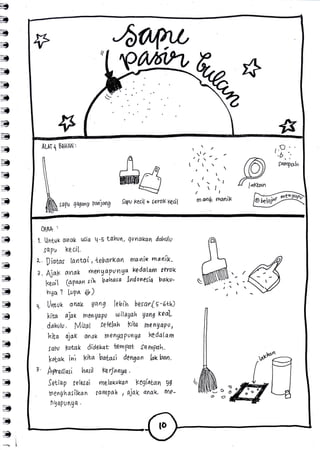 Sapu
pasir bulan
ALAT & BAHAN:
sapu gagang panjang
Sapu kecil + serok kecil
manik manik
lakban
sampah
belajar menyapu
CARA :
1. Untuk anak usia 4-5 tahun, gunakan dahulu
sapu kecil.
2. Diatas lantai, tebarkan manik manik.
3. Ajak anak menyapunya kedalam serok
kecil (apaan sih bahasa Indonesia baku-
nya ? Lupa
4. Untuk anak yang lebih besar (5-6th)
kita ajak menyapu wilayah yang kecil
dahulu. Misal setelah kita menyapu,
kita ajak anak menyapunya kedalam
satu kotak didekat tempat sampah.
kotak ini kita batasi dengan lakban.
Apresiasi hasil kerjanya.
Setiap selesai melakukan kegiatan yg
menghasilkan sampah, ajak anak me-
nyapunya.
lakban
10